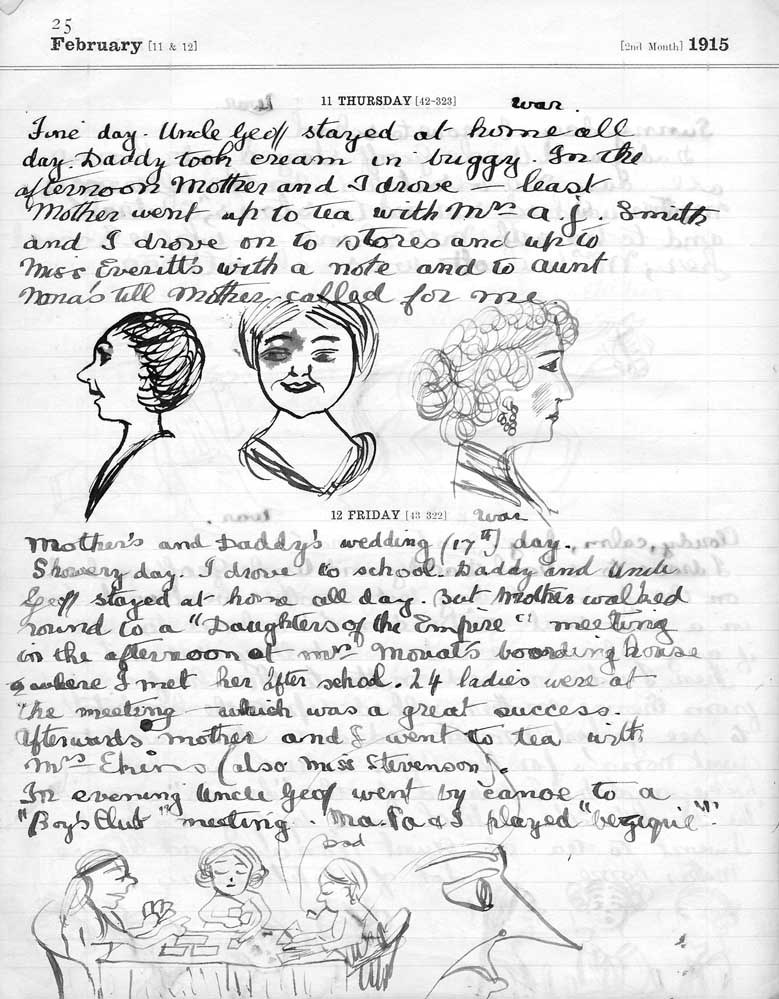 25
February [11 & 12] [2nd Month] 1915
11 THURSDAY [42-323] war.
Fine day. Uncle Geoff stayed at home all
day. Daddy took cream in buggy. In the
afternoon Mother and I drove — least
Mother went up to tea with Mrs A. J. Smith
and I drove on to stores and up to
Miss Everitt's with a note and to aunt
Nona's till Mother called for me.
12 FRIDAY [43-322] war
Mother's and Daddy's wedding (17th) day.
Showery day. I drove to school. Daddy and Uncle
Geoff stayed at home all day. But Mother walked
round to a "Daughters of the Empire" meeting
in the afternoon at Mrs Mouat's boarding house
where I met her after school. 24 ladies were at
the meeting which was a great success.
Afterwards mother and I went to tea with
Mrs (also Miss Stevenson).
In evening Uncle Geoff went by canoe to a
"Boy's Club" meeting. Ma. Pa & I played "bezique".
Dad